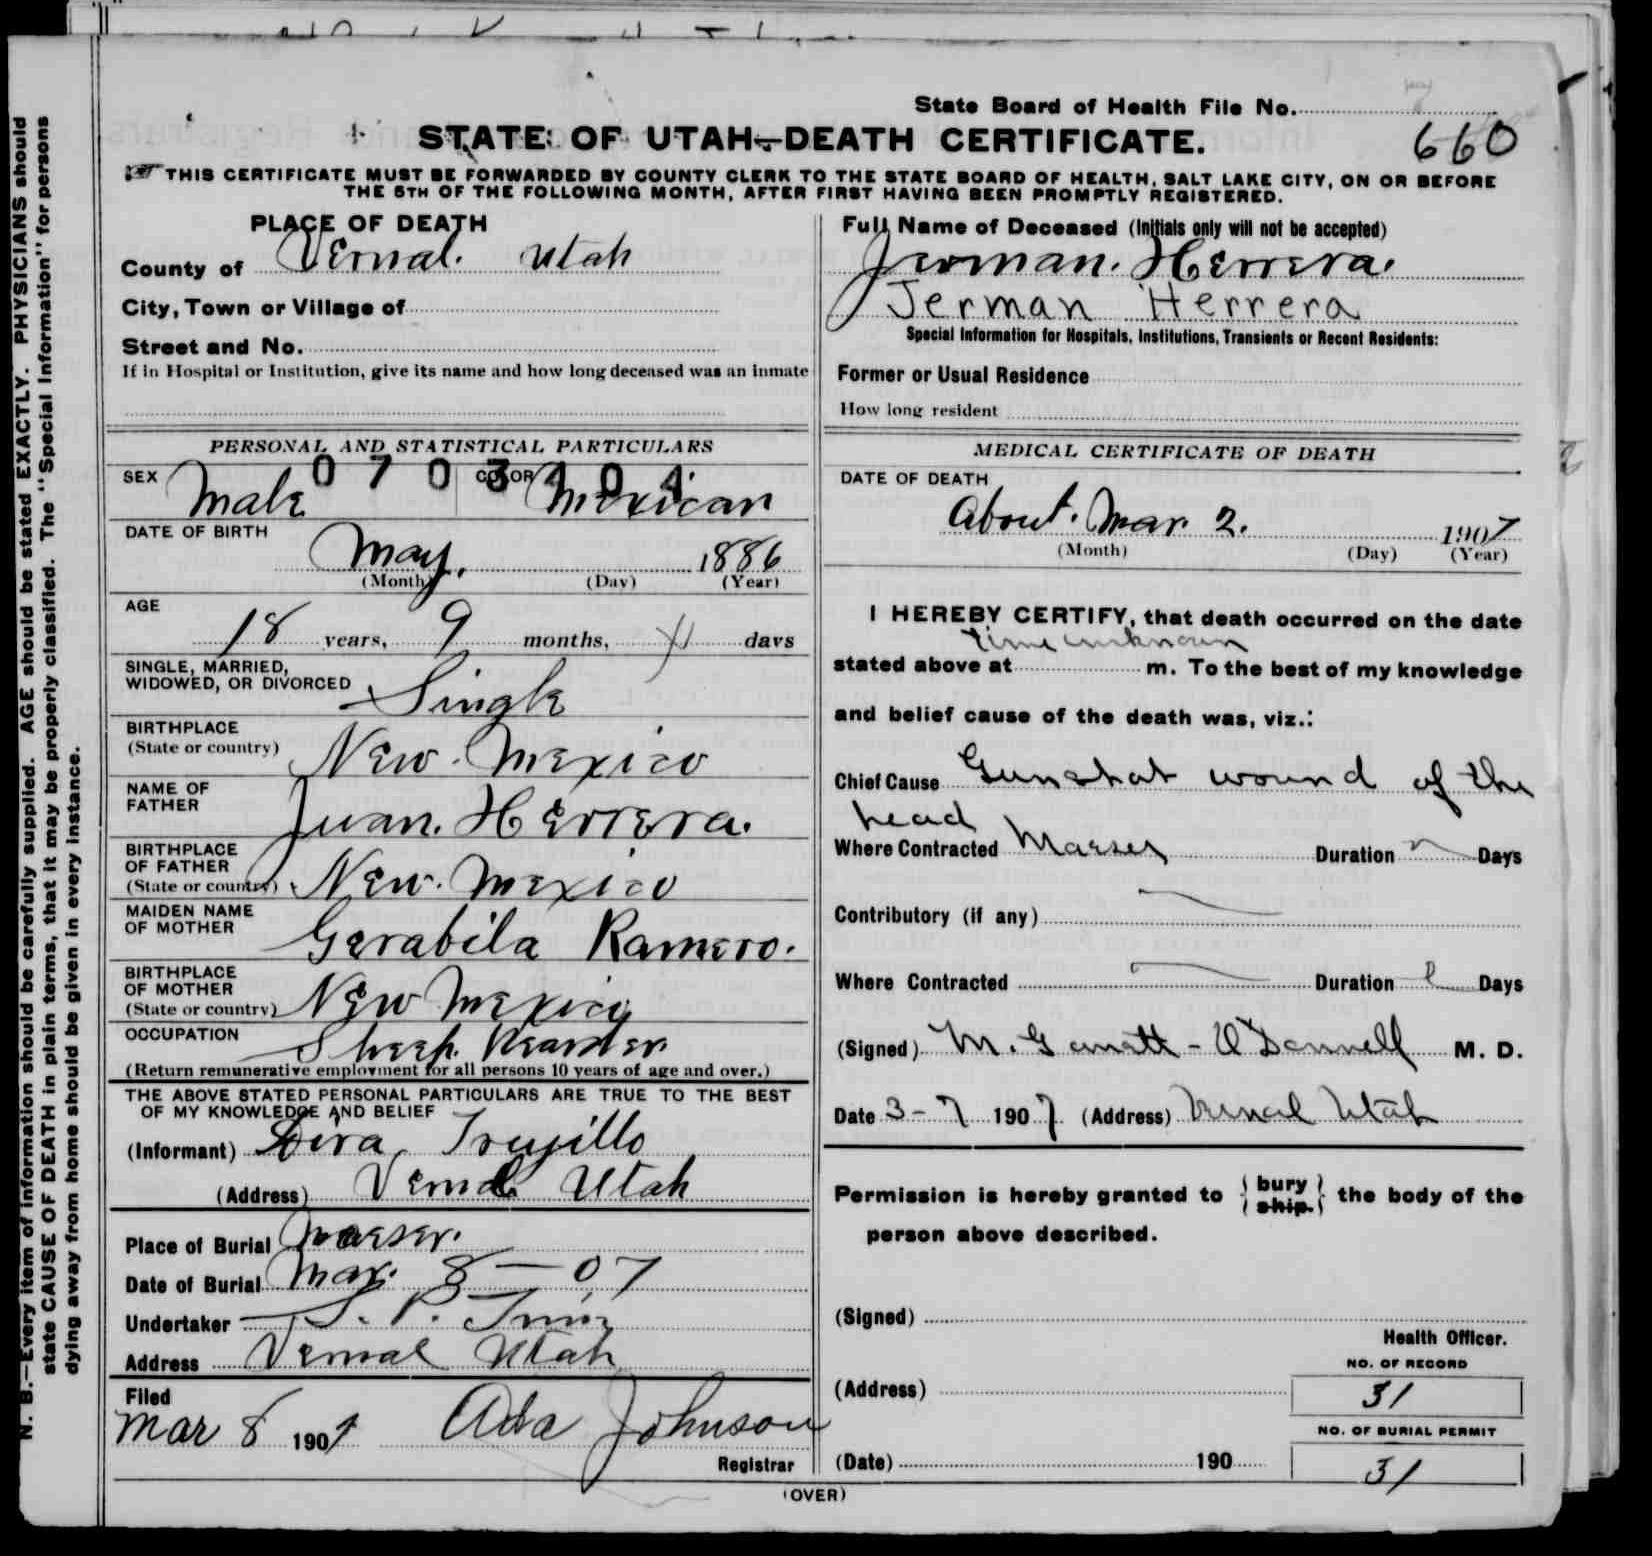 State Board of Health File No.
660
STATE OF UTAH—DEATH CERTIFICATE.
THIS CERTIFICATE MUST BE FORWARDED BY COUNTY CLERK TO THE STATE BOARD OF HEALTH, SALT LAKE CITY, ON OR BEFORE
THE 5TH OF THE FOLLOWING MONTH, AFTER FIRST HAVING BEEN PROMPTLY REGISTERED.
N. B.—Every item of information should be carefully supplied. AGE should be stated EXACTLY. PHYSICIANS should
state CAUSE OF DEATH in plain terms, that it may be properly classified. The "Special Information" for persons
dying away from home should be given in every instance.
PLACE OF DEATH
County of Vernal. Utah
City, Town or Village of
Street and No.
If in Hospital or Institution, give its name and how long deceased was an inmate
PERSONAL AND STATISTICAL PARTICULARS
0703404
SEX Male COLOR Mexican
DATE OF BIRTH
May. 1886
(Month) (Day) (Year)
AGE
18 years, 9 months, days
SINGLE, MARRIED,
WIDOWED, OR DIVORCED Single
BIRTHPLACE
(State or country) New. Mexico
NAME OF
FATHER Juan. Herrera.
BIRTHPLACE
OF FATHER
(State or country) New. Mexico
MAIDEN NAME
OF MOTHER Gerabila Ramero.
BIRTHPLACE
OF MOTHER
(State or country) New Mexico
OCCUPATION Sheep. Hearder.
(Return remunerative employment for all persons 10 years of age and over.)
THE ABOVE STATED PERSONAL PARTICULARS ARE TRUE TO THE BEST
OF MY KNOWLEDGE AND BELIEF
(Informant) Trujillo
(Address) Vernal Utah
Place of Burial Maeser.
Date of Burial Mar. 8—07
Undertaker S. P.
Address Vernal Utah
Filed
Mar 8 1907 Ada Johnson
Registrar
(OVER)
Full Name of Deceased (Initials only will not be accepted)
Jerman. Herrera.
Jerman Herrera
Special Information for Hospitals, Institutions, Transients or Recent Residents:
Former or Usual Residence
How long resident
MEDICAL CERTIFICATE OF DEATH
DATE OF DEATH
About. Mar. 2. 1907
(Month) (Day) (Year)
I HEREBY CERTIFY, that death occurred on the date
time unknown
stated above at m. To the best of my knowledge
and belief cause of the death was, viz.:
Chief Cause Gunshot wound of the
head
Where Contracted Maeser Duration Days
Contributory (if any)
Where Contracted Duration Days
(Signed) M. O'Donnell M. D.
Date 3-7 1907 (Address) Vernal Utah
Permission is hereby granted to { bury
ship. } the body of the
person above described.
(Signed)
Health Officer.
(Address)
NO. OF RECORD
31
NO. OF BURIAL PERMIT
31
(Date) 190